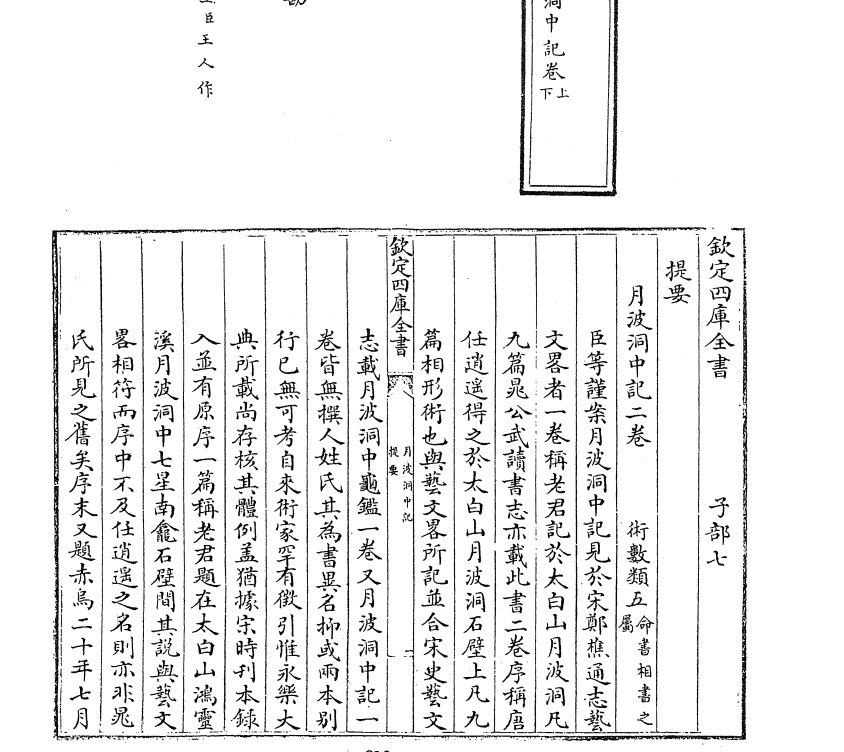 洞中記卷上下
勘
臣王人作
欽定四庫全書 子部七
提要
月波洞中記二卷 術數類五命書相書之屬
臣等謹案月波洞中記見於宋鄭樵通志藝
文畧者一卷稱老君記於太白山月波洞凡
九篇晁公武讀書志亦載此書二卷序稱唐
任逍遥得之於太白山月波洞石壁上凡九
篇相形術也與藝文畧所記並合宋史藝文
欽定四庫全書 月波洞中記 提要 一
志載月波洞中龜鑑一卷又月波洞中記一
卷皆無撰人姓氏其為書異名抑或兩本别
行已無可考自來術家罕有徵引惟永樂大
典所載尚存核其體例盖猶據宋時刊本録
入並有原序一篇稱老君題在太白山鴻靈
溪月波洞中七星南龕石壁間其説與藝文
畧相符而序中不及任逍遥之名則亦非晁
氏所見之舊矣序末又題赤烏二十年七月